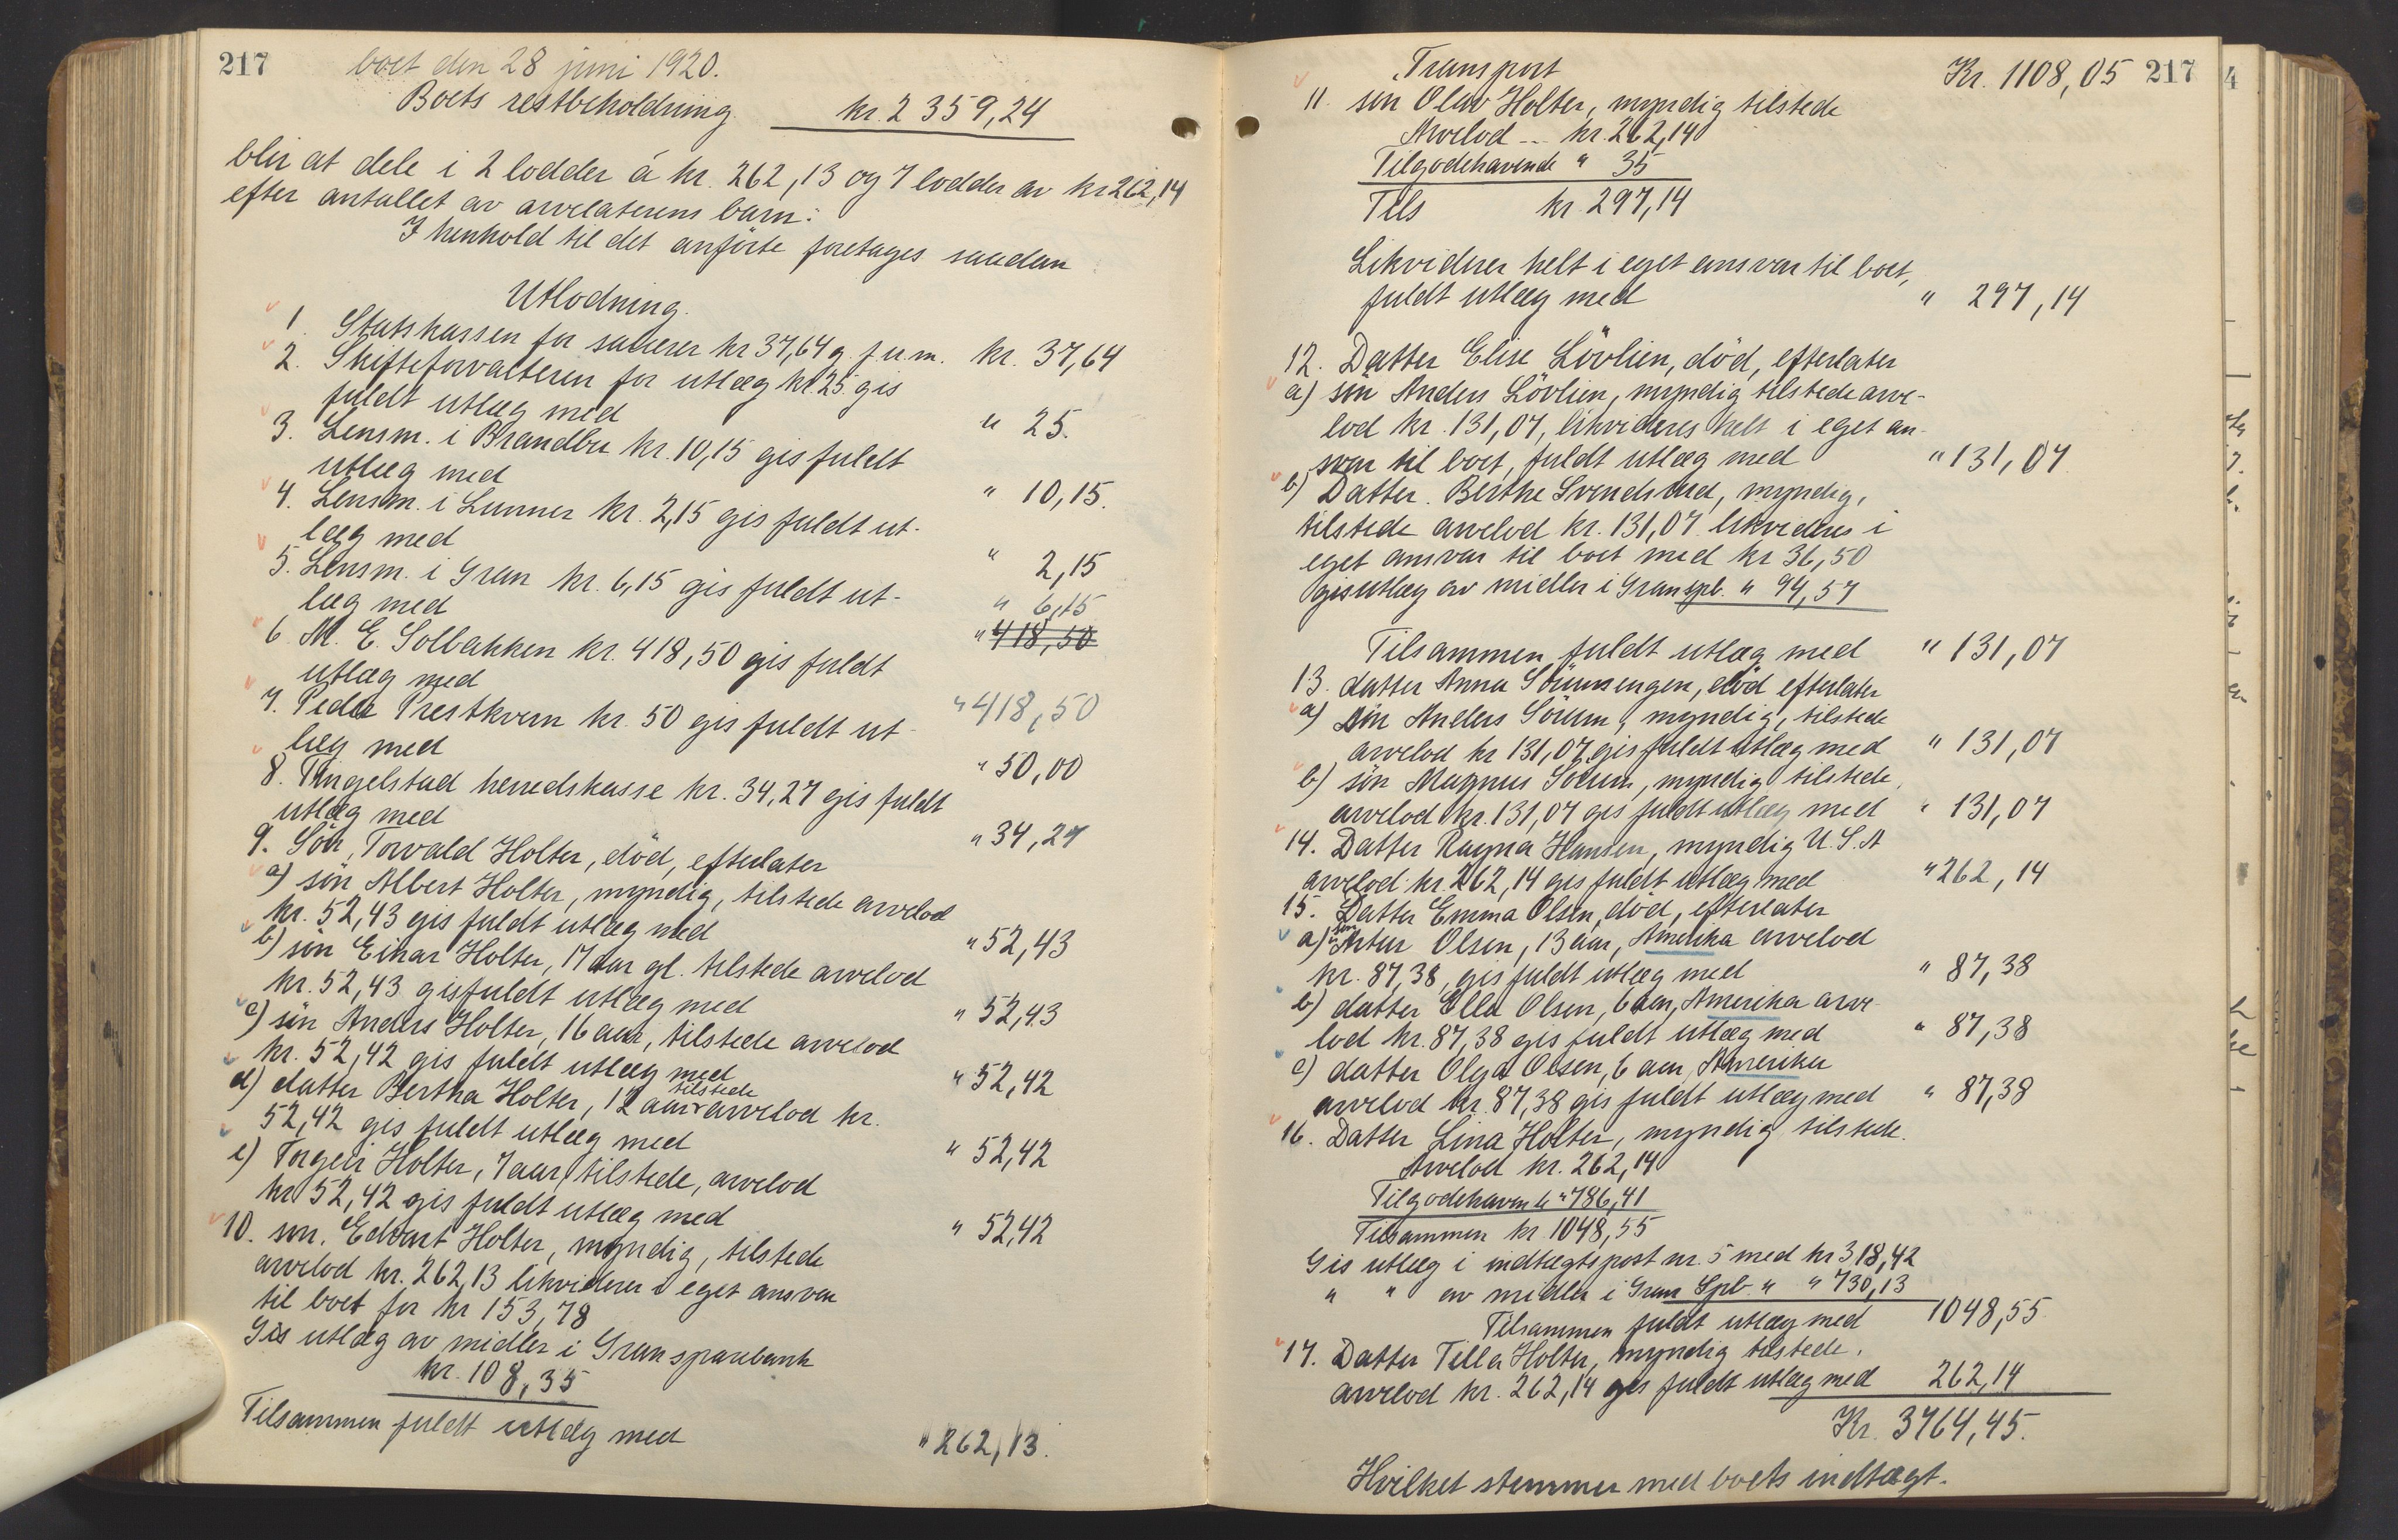 217
boet den 28 juni 1920.
Boets restbeholdning kr. 2 359,24
blir at dele i 2 lodder á kr. 262,13 og 7 lodder av kr 262,14
efter antallet av arvelaterens barn.
I henhold til det anförte foretages saadan
Utlodning.
1. Statskassen for salærer kr 37,64 g. f. u. m. kr. 37,64
2. Skifteforvalteren for utlæg kr 25 gis
fuldt utlæg med " 25.
3. Lensm. i Brandbu kr. 10,15 gis fuldt
utlæg med " 10,15.
4. Lensm. i Lunner kr. 2,15 gis fuldt ut-
læg med " 2,15
5. Lensm. i Gran kr. 6,15 gis fuldt ut-
læg med " 6,15
" 418,50
6. M. E. Solbakken kr. 418,50 gis fuldt
utlæg med " 418,50
7. Peder Prestkvern kr. 50 gis fuldt ut-
læg med " 50,00
8. Tingelstad herredskasse kr. 34,27 gis fuldt
utlæg med " 34,27
9. Sön, Torvald Holter, död, efterlater
a) sön Albert Holter, myndig, tilstede arvelod
kr. 52,43 gis fuldt utlæg med " 52,43
b) sön Einar Holter, 17 aar gl. tilstede arvelod
kr. 52,43 gis fuldt utlæg med " 52,43
c) sön Anders Holter, 16 aar, tilstede arvelod
kr. 52,42 gis fuldt utlæg med " 52,42
d) datter Bertha Holter, 12 aar tilstede arvelod kr.
52,42 gis fuldt utlæg med " 52,42
e) Torgeir Holter, 7 aar, tilstede, arvelod
kr 52,42 gis fuldt utlæg med " 52,42
10. sön. Edvart Holter, myndig, tilstede
arvelod kr. 262,13 likviderer i eget ansvar
til boet for kr 153,78
Gis utlæg av midler i Gran sparebank
kr. 108,35
Tilsammen fuldt utlæg med " 262,13.
Transport Kr. 1108,05 217
11. sön Olav Holter, myndig tilstede
Arvelod -- kr. 262,14
Tilgodehavende " 35
Tils kr. 297,14
Likviderer helt i eget ansvar til boet,
fuldt utlæg med " 297,14
12. Datter Elise Lövlien, död, efterlater
a) sön Anders Lövlien, myndig tilstede arve-
lod kr. 131,07, likvideres helt i eget an-
svar til boet, fuldt utlæg med " 131,07
b) Datter. Berthe Svendsrud, myndig,
tilstede arvelod kr. 131,07 likvideres i
eget ansvar til boet med kr 36,50
gis utlæg av midler i Gran spb. " 94,57
Tilsammen fuldt utlæg med " 131,07
13. datter Anna Sörumsengen, död efterlater
a) sön Anders Sörum, myndig, tilstede
arvelod kr 131,07 gis fuldt utlæg med " 131,07
b) sön Magnus Sörum, myndig tilstede,
arvelod kr. 131,07 gis fuldt utlæg med " 131,07
14. Datter Ragna Hansen, myndig U.S.A
arvelod kr. 262,14 gis fuldt utlæg med " 262,14
15. Datter Emma Olsen, död, efterlater
a) sön Artur Olsen, 13 aar, Amerika arvelod
kr. 87,38, gis fuldt utlæg med " 87,38
b) datter Ella Olsen, 6 aar, Amerika arve-
lod kr. 87,38 gis fuldt utlæg med " 87,38
c) datter Olga Olsen, 6 aar, Amerika
arvelod kr. 87,38 gis fuldt utlæg med " 87,38
16. Datter Lina Holter, myndig tilstede.
Arvelod kr. 262,14
Tilgodehavende " 786,41
Tilsammen kr 1048,55
Gis utlæg i indtægtspost nr. 5 med kr 318,42
" " av midler i Gran Spb. " " 730,13
Tilsammen fuldt utlæg med 1048,55
17. Datter Tella Holter, myndig tilstede.
arvelod kr. 262,14 gis fuldt utlæg med 262,14
Kr. 3764,45.
Hvilket stemmer med boets indtægt.